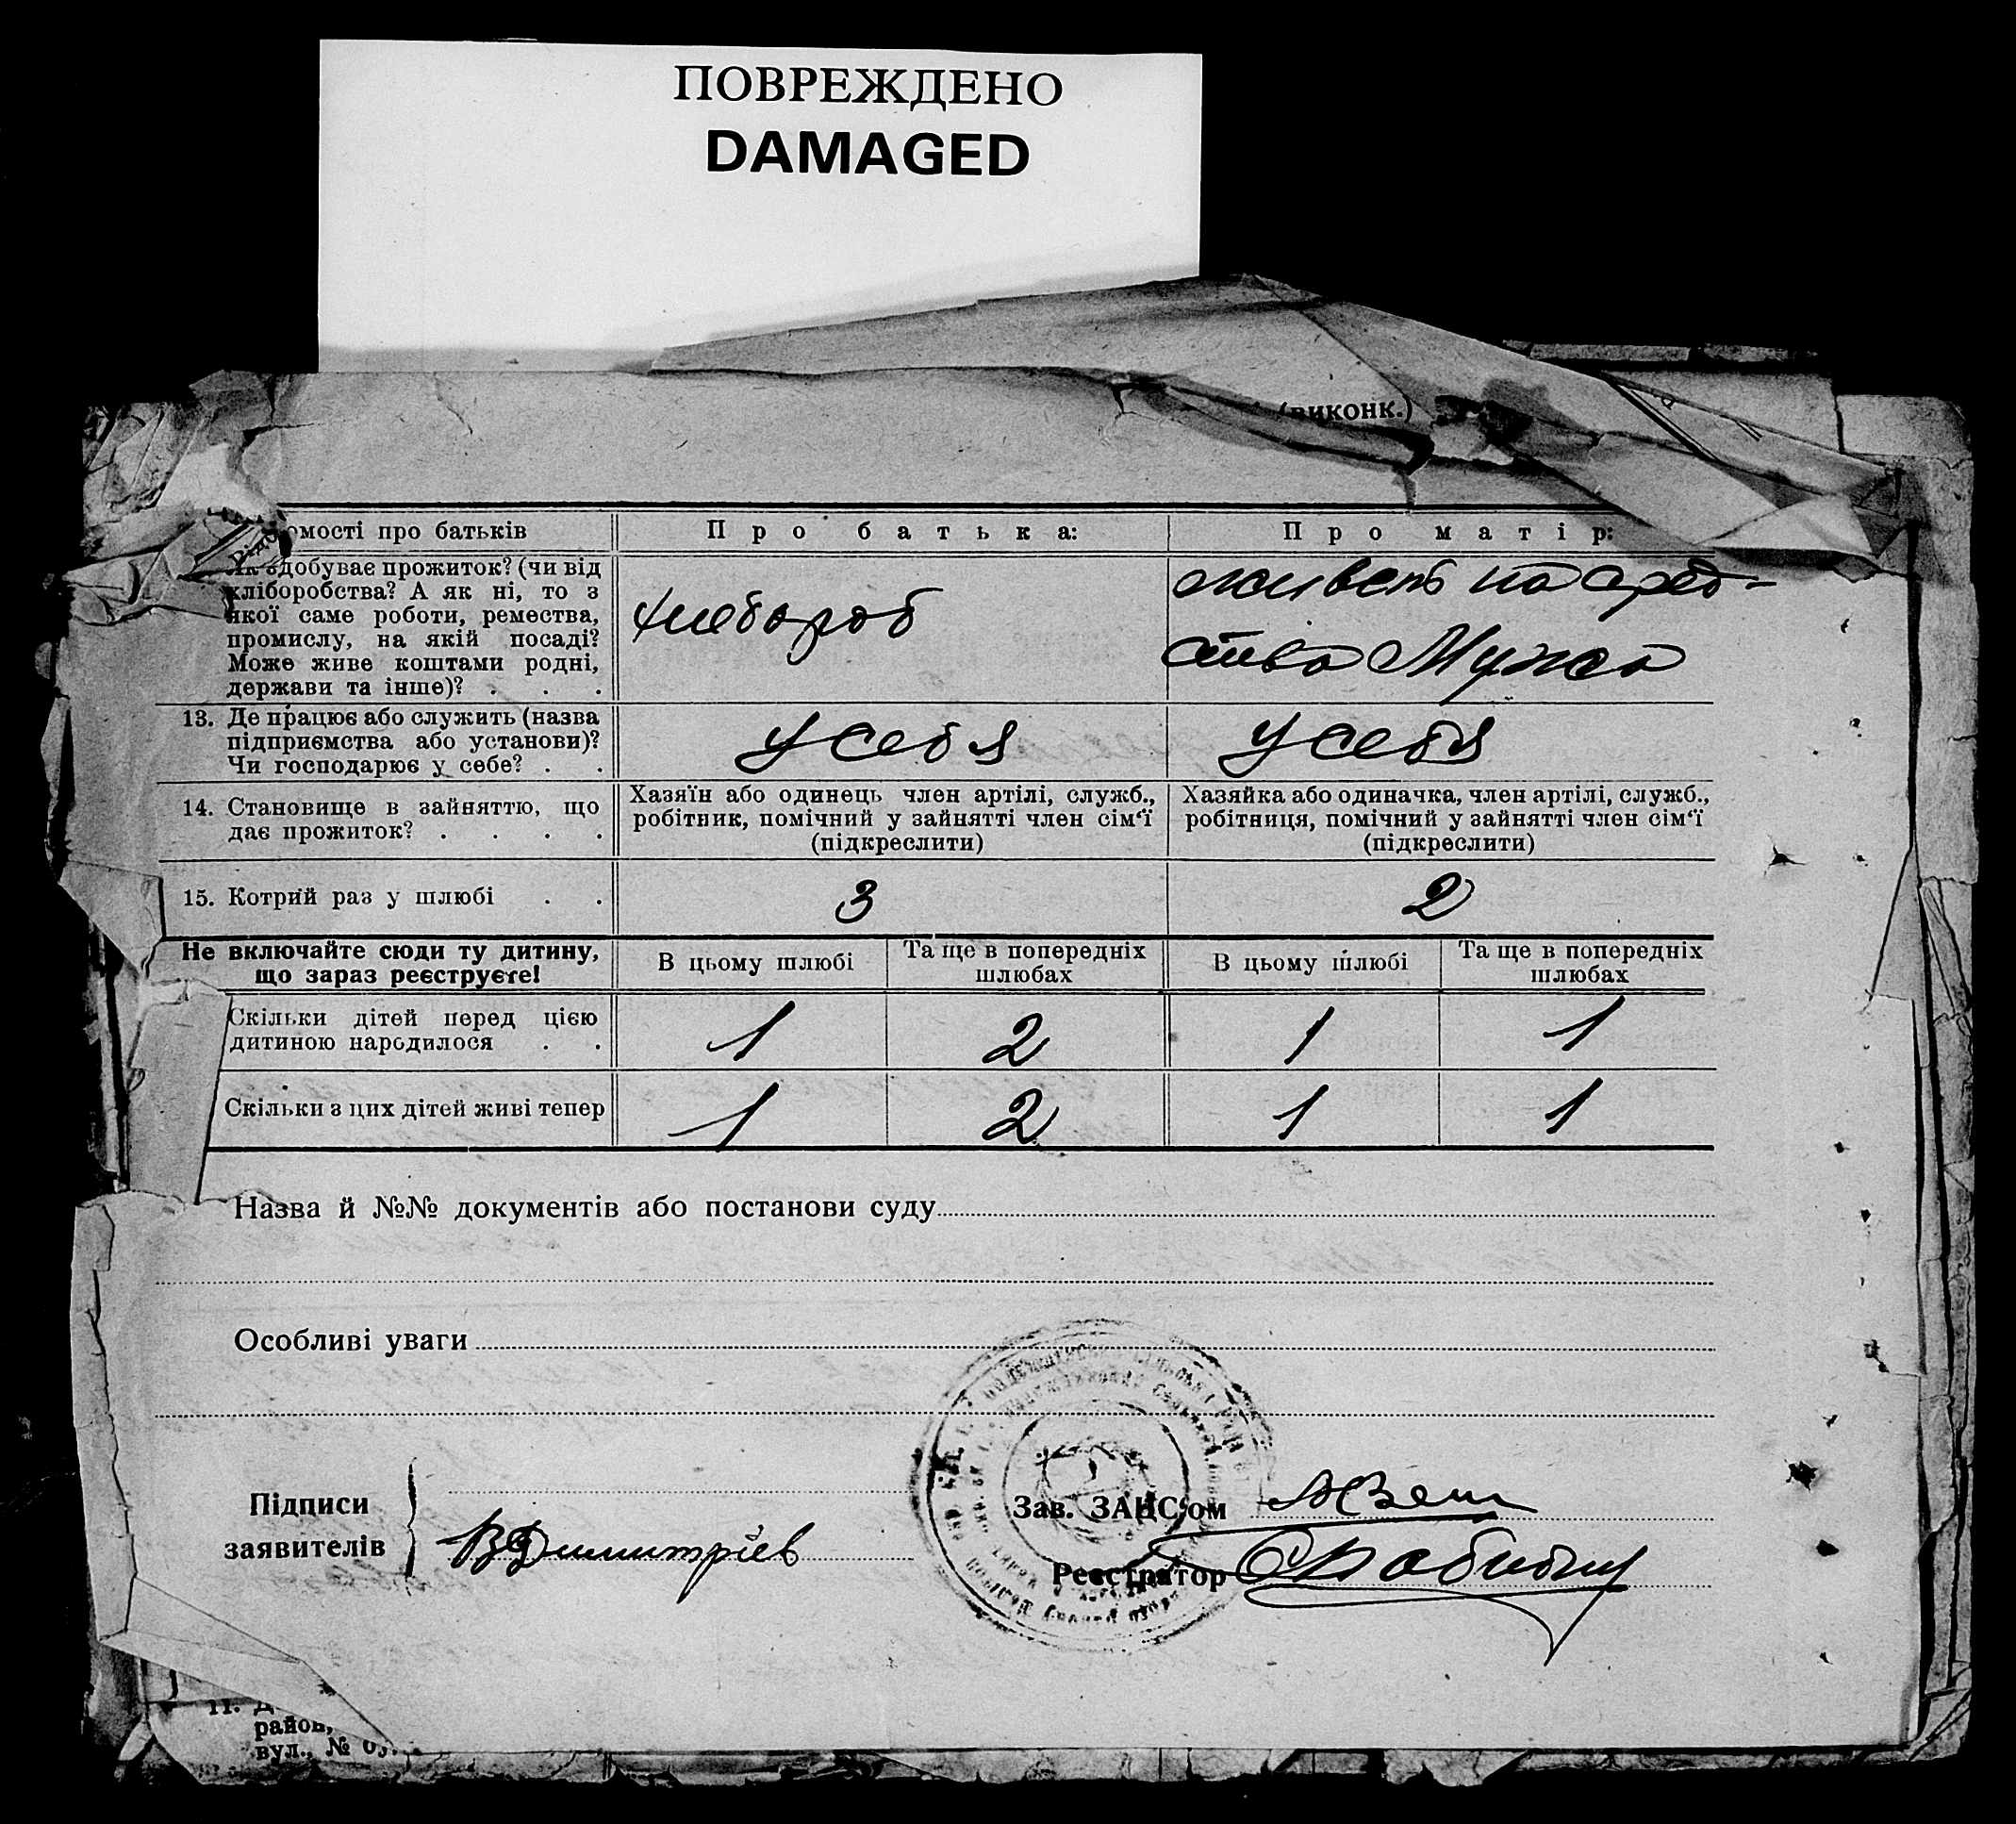 ПОВРЕЖДЕНО
DAMAGED
(виконк.)
омості про батьків
Про батька:
Про матір:
Як здобуває прожиток? (чи від
хліборобства? А як ні, то з
якої саме роботи, ремества,
промислу, на якій посаді?
Може живе коштами родні,
держави та інше)? . . .
хлебороб
живет на сред-
ства Мужа
13. Де працює або служить (назва
підприємства або установи)?
Чи господарює у себе? . .
у себя
у себя
14. Становище в зайняттю, що
дає прожиток? . . . .
Хазяїн або одинець член артілі, служб.,
робітник, помічний у зайнятті член сім‘ї
(підкреслити)
Хазяйка або одиначка, член артілі, служб.,
робітниця, помічний у зайнятті член сім‘ї
(підкреслити)
15. Котрий раз у шлюбі . .
3
2
Не включайте сюди ту дитину,
що зараз реєструєте!
В цьому шлюбі
Та ще в попередніх
шлюбах
В цьому шлюбі
Та ще в попередніх
шлюбах
Скільки дітей перед цією
дитиною народилося . .
1
2
1
1
Скільки з цих дітей живі тепер
1
2
1
1
Назва й №№ документів або постанови суду
Особливі уваги
Підписи
заявителів
ВДимитріев
Зав. ЗАНС‘ом
Реєстратор
11. Д
район,
вул., №